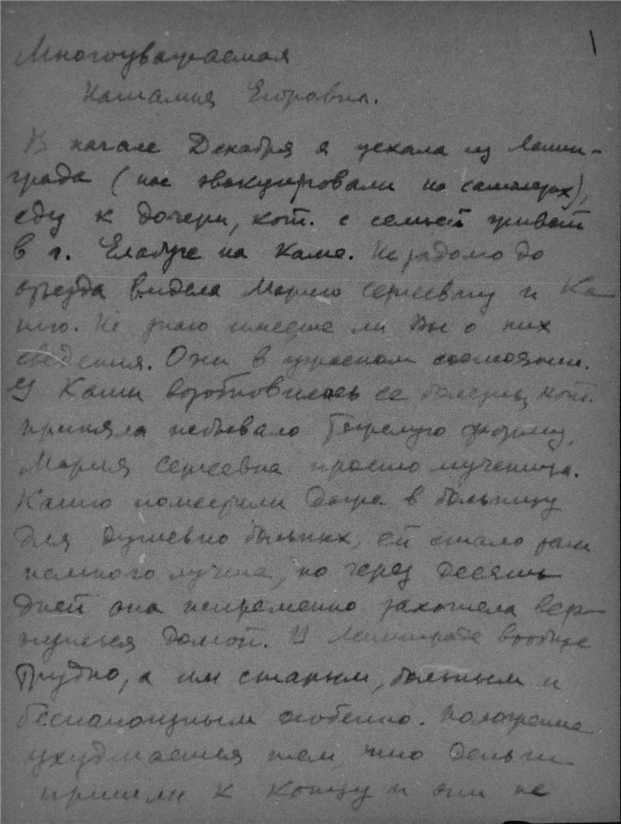 1
Многоуважаемая
Наталия Егоровна.
В начале Декабря я уехала из Ленин-
града (нас эвакуировали на самолетах),
еду к дочери, кот. с семьей живет
в г. Елабуге на Каме. Незадолго до
отъезда видела Марию Сергеевну и Ка-
тю. Не знаю имеете ли Вы о них
сведения. Они в ужасном состоянии.
У Кати возобновилась ее болезнь, кот.
приняла небывало тяжелую форму,
Мария Сергеевна просто мученица.
Катю помещали в больницу
для душевно больных, ей стало там
немного лучше, но через десять
дней она непременно захотела вер-
нуться домой. В Ленинграде вообще
трудно, а им старым, больным и
беспомощным особенно. Положение
ухудшается тем, что деньги
пришли к концу и они не